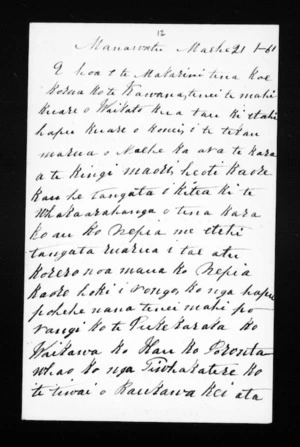 12
Manawatu Maehe 21 1-61
E hoa e te Makarini tena koe
korua ko te Kawana, tenei te mahi
kuare o Waikato kua tau ki etahi
hapu kuare o konei, i te tekau
marua o Maehe ka ara te kara
a te kingi maori, heoti kaore
kau he tangata o kitea ki te
whakaarahanga o tena kara
ko au ko Nepia me etehi
tangata ruarua i tae atu
korero noa maua ko Nepia
kaore hoki i rongo, ko nga hapu
pohehe nana tenei mahi po
rangi ko te Pukekaraka ko
Waikawa ko Hau ko Poronta
whao ko nga Tiwhakatere ko
te Iwai o Raukawa kei ata